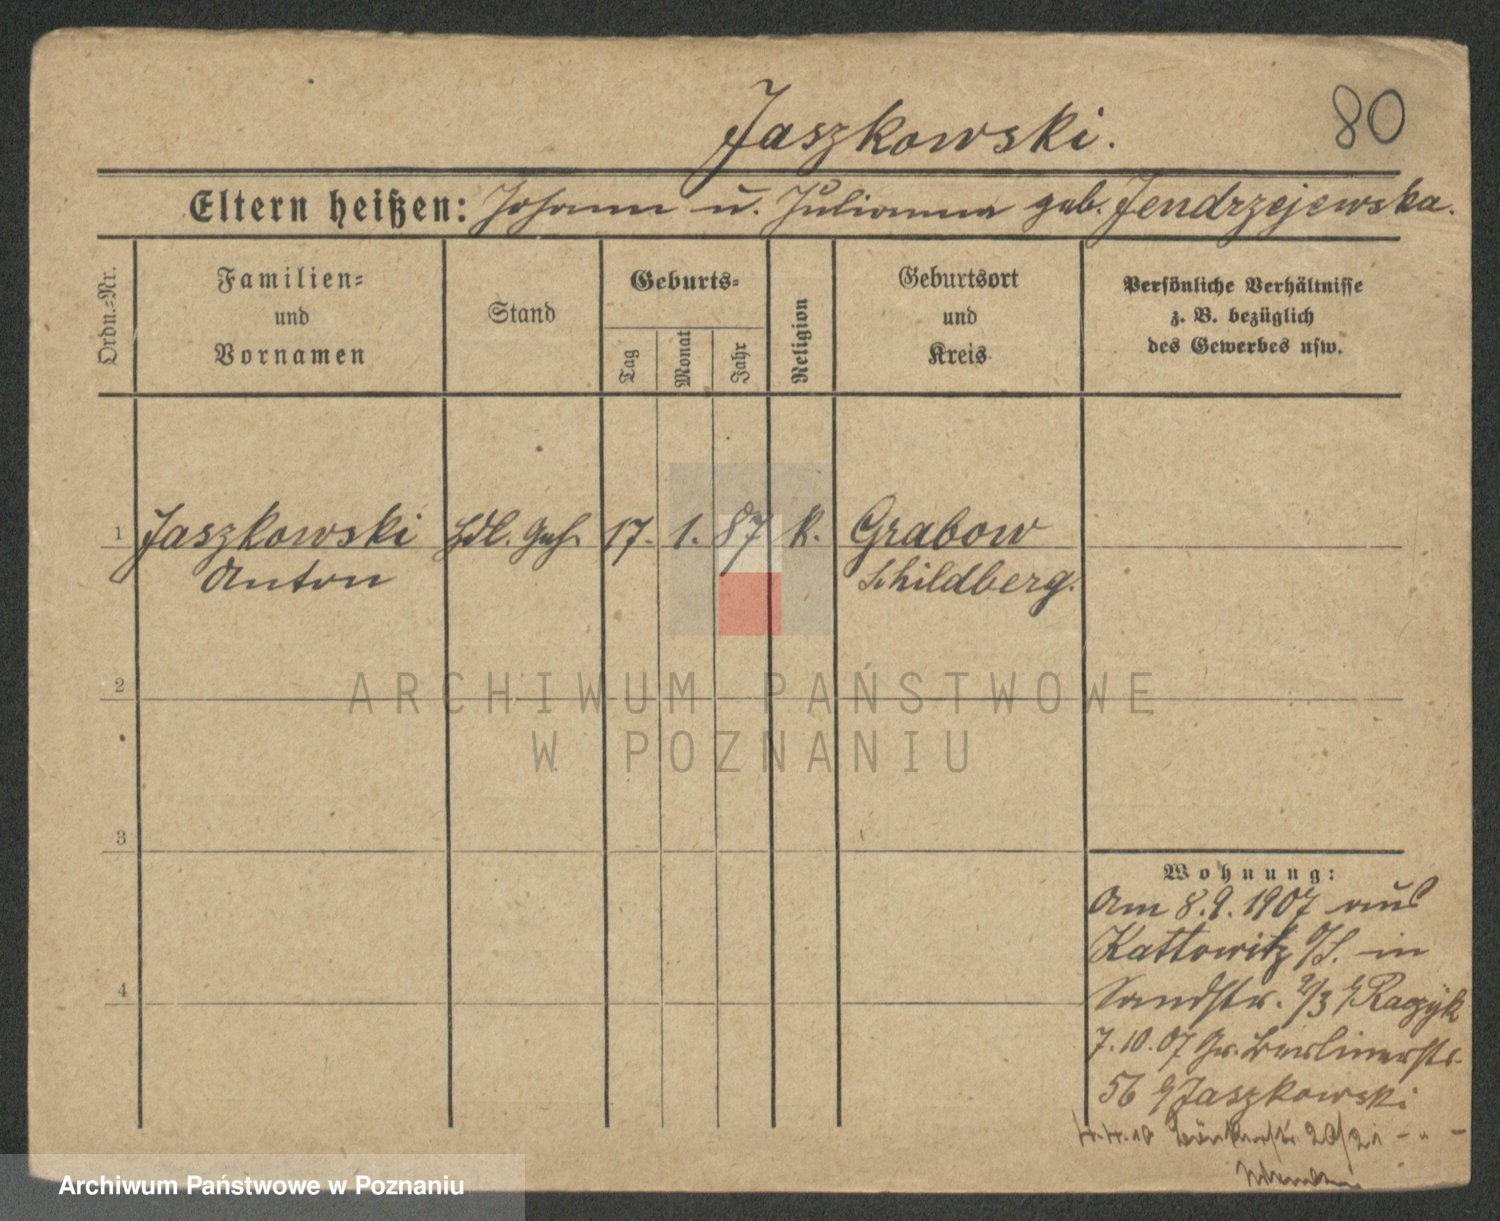 80
Jaszkowski.
Eltern heißen: Johann u. Julianna geb. Jendrzejewska.
Ordn.=Nr.
Familien=
und
Vornamen
Stand
Geburts=
Tag
Monat
Jahr
Religion
Geburtsort
und
Kreis
Persönliche Verhältnisse
z. B. bezüglich
des Gewerbes usw.
1 Jaszkowski Hdl. Geh. 17. 1. 87 k. Grabow
Anton Schildberg.
2
ARCHIWUM PAŃSTWOWE
W POZNANIU
3
Wohnung:
Am 8.9.1907 aus
Kattowitz O/S. in
Sandstr. 2/3 b/
7.10.07 Gr. Berlinerstr.
56 b/ Jaszkowski
4
20/21 - " -
Archiwum Państwowe w Poznaniu